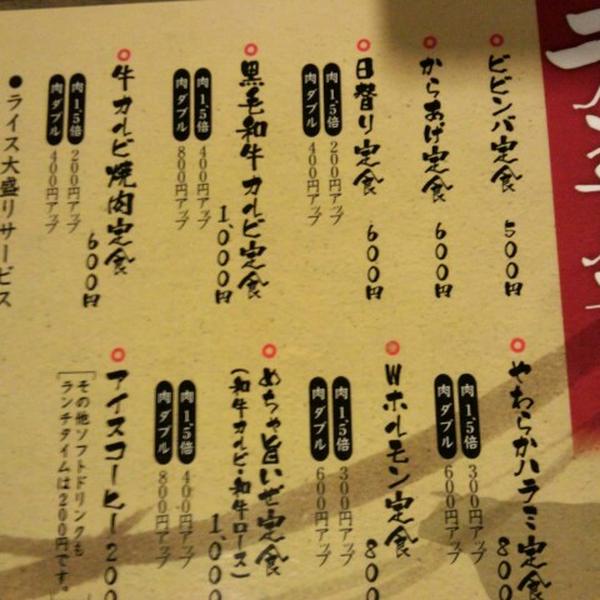 ビビンバ定食 500円
からあげ定食 600円
日替り定食 600円
肉1.5倍 200円アップ
肉ダブル 400円アップ
黒毛和牛カルビ定食 1,000円
肉1.5倍 400円アップ
肉ダブル 800円アップ
牛カルビ焼肉定食 600円
肉1.5倍 200円アップ
肉ダブル 400円アップ
●ライス大盛りサービス
やわらかハラミ定食 80
肉1.5倍 300円アップ
肉ダブル 600円アップ
Wホルモン定食 80
肉1.5倍 300円アップ
肉ダブル 600円アップ
めちゃ旨いぜ定食
(和牛カルビ・和牛ロース) 1,00
肉1.5倍 400円アップ
肉ダブル 800円アップ
アイスコーヒー 200
その他ソフトドリンクも
ランチタイムは200円です。